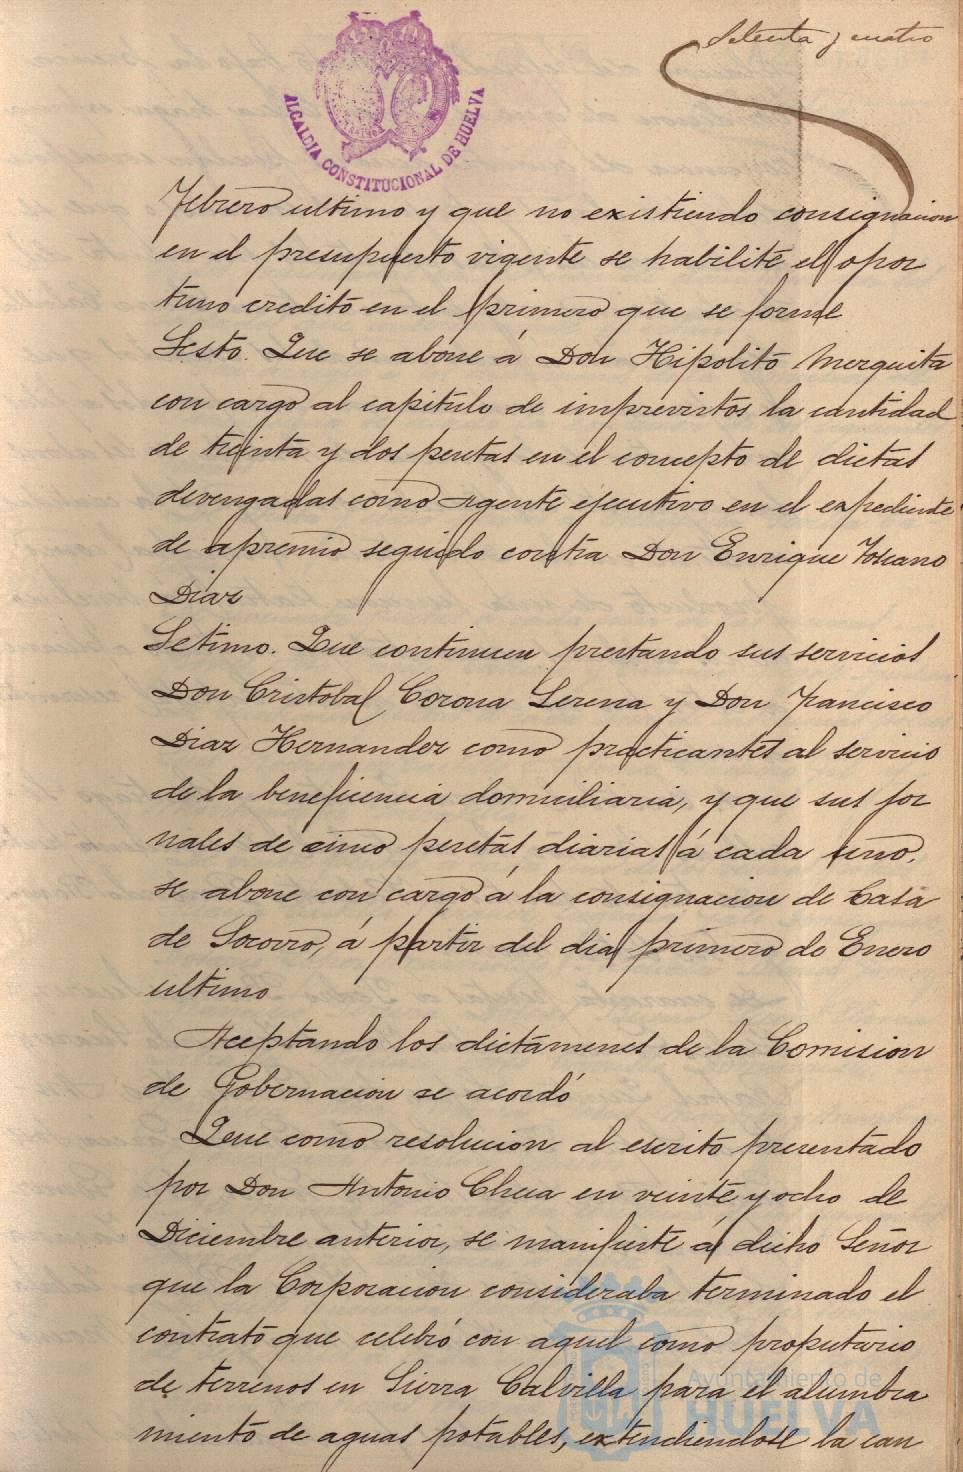 Setenta y cuatro
ALCALDIA CONSTITUCIONAL DE HUELVA
Febrero ultimo y que no existiendo consignacion
en el presupuesto vigente se habilite el opor
tuno credito en el primero que se forme
Sesto. Que se abone á Don Hipolito Mezquita
con cargo al capitulo de imprevistos la cantidad
de treinta y dos pesetas en el concepto de dietas
devengadas como Agente ejecutivo en el expediente
de apremio seguido contra Don Enrique Toscano
Diaz
Setimo. Que continuen prestando sus servicios
Don Cristobal Corona Serena y Don Francisco
Diaz Hernandez como practicantes al servicio
de la beneficencia domiciliaria, y que sus jor
nales de cinco pesetas diarias á cada uno,
se abone con cargo á la consignacion de Casa
de Socorro, á partir del dia primero de Enero
ultimo
Aceptando los dictamenes de la Comision
de Gobernacion se acordó
Que como resolucion al escrito presentado
por Don Antonio Checa en veinte y ocho de
Diciembre anterior, se manifieste á dicho Señor
que la Corporacion consideraba terminado el
contrato que celebró con aquel como propietario
de terrenos en Sierra Calvilla para el alumbra
miento de aguas potables, extendiendose la can
Ayuntamiento de
HUELVA